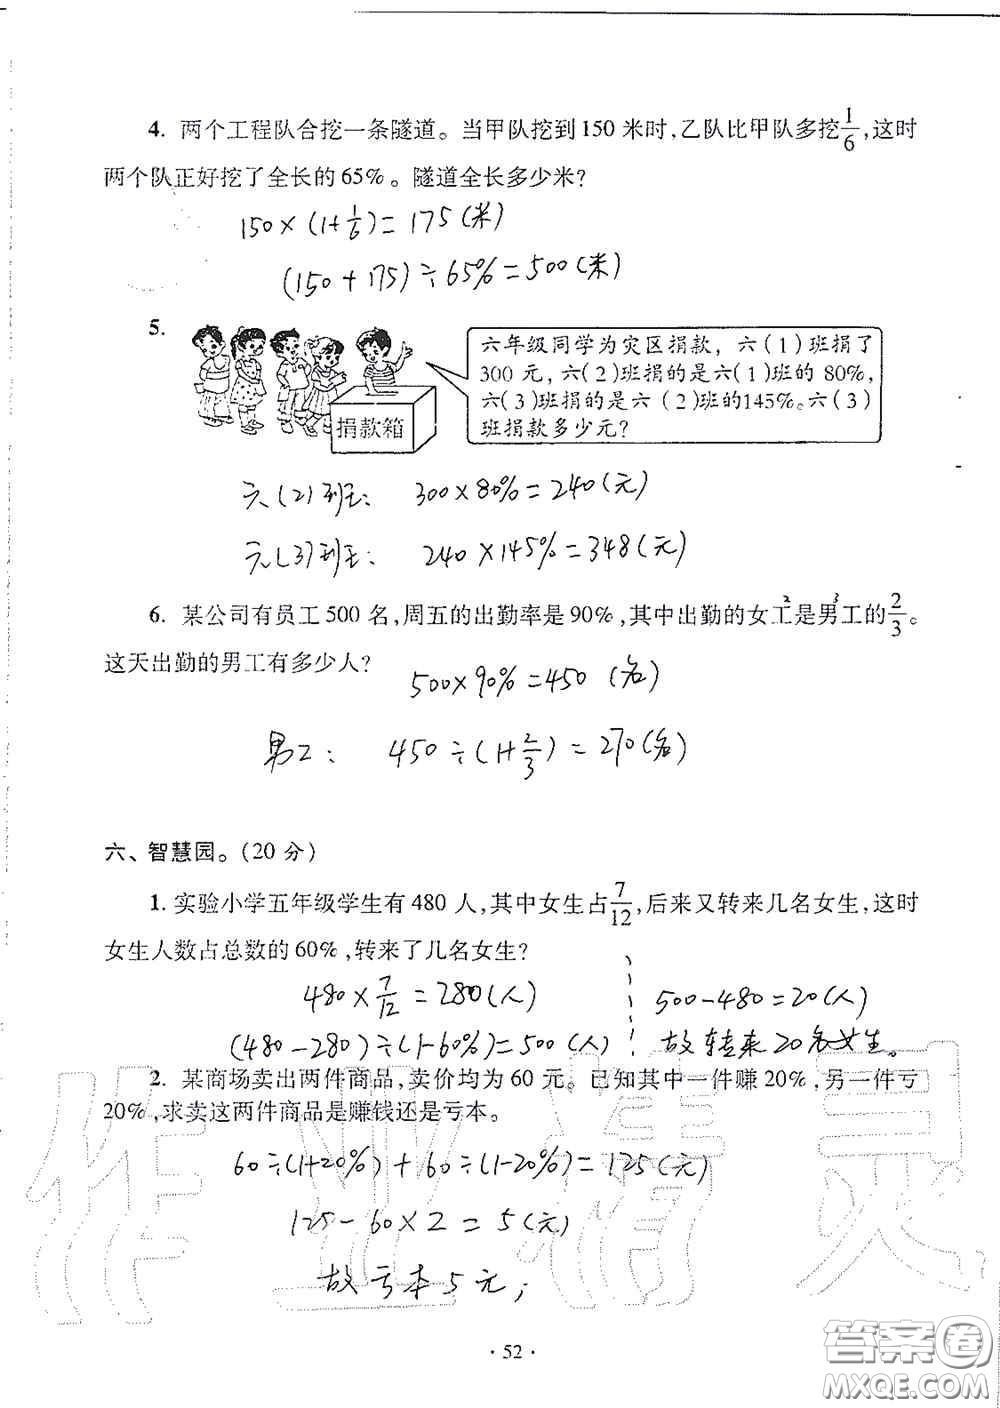 4. 两个工程队合挖一条隧道。当甲队挖到150米时,乙队比甲队多挖1/6,这时
两个队正好挖了全长的65%。隧道全长多少米?
150×(1+1/6)=175(米)
(150+175)÷65%=500(米)
5.
六年级同学为灾区捐款，六(1)班捐了
300元,六(2)班捐的是六(1)班的80%,
六(3)班捐的是六(2)班的145%。六(3)
班捐款多少元?
捐款箱
六(2)班: 300×80%=240(元)
六(3)班: 240×145%=348(元)
6. 某公司有员工500名,周五的出勤率是90%,其中出勤的女工是男工的2/3。
2 3
这天出勤的男工有多少人?
500×90%=450(名)
男工: 450÷(1+2/3)=270(名)
六、智慧园。(20分)
1. 实验小学五年级学生有480人,其中女生占7/12,后来又转来几名女生,这时
女生人数占总数的60%,转来了几名女生?
480×7/12=280(人)
(480-280)÷(1-60%)=500(人)
500-480=20(人)
故转来20名女生。
2. 某商场卖出两件商品,卖价均为60元。已知其中一件赚20%,另一件亏
20%,求卖这两件商品是赚钱还是亏本。
60÷(1+20%)+60÷(1-20%)=125(元)
125-60×2=5(元)
故亏本5元;
作业精灵
·52·
答案圈
MXQE.COM